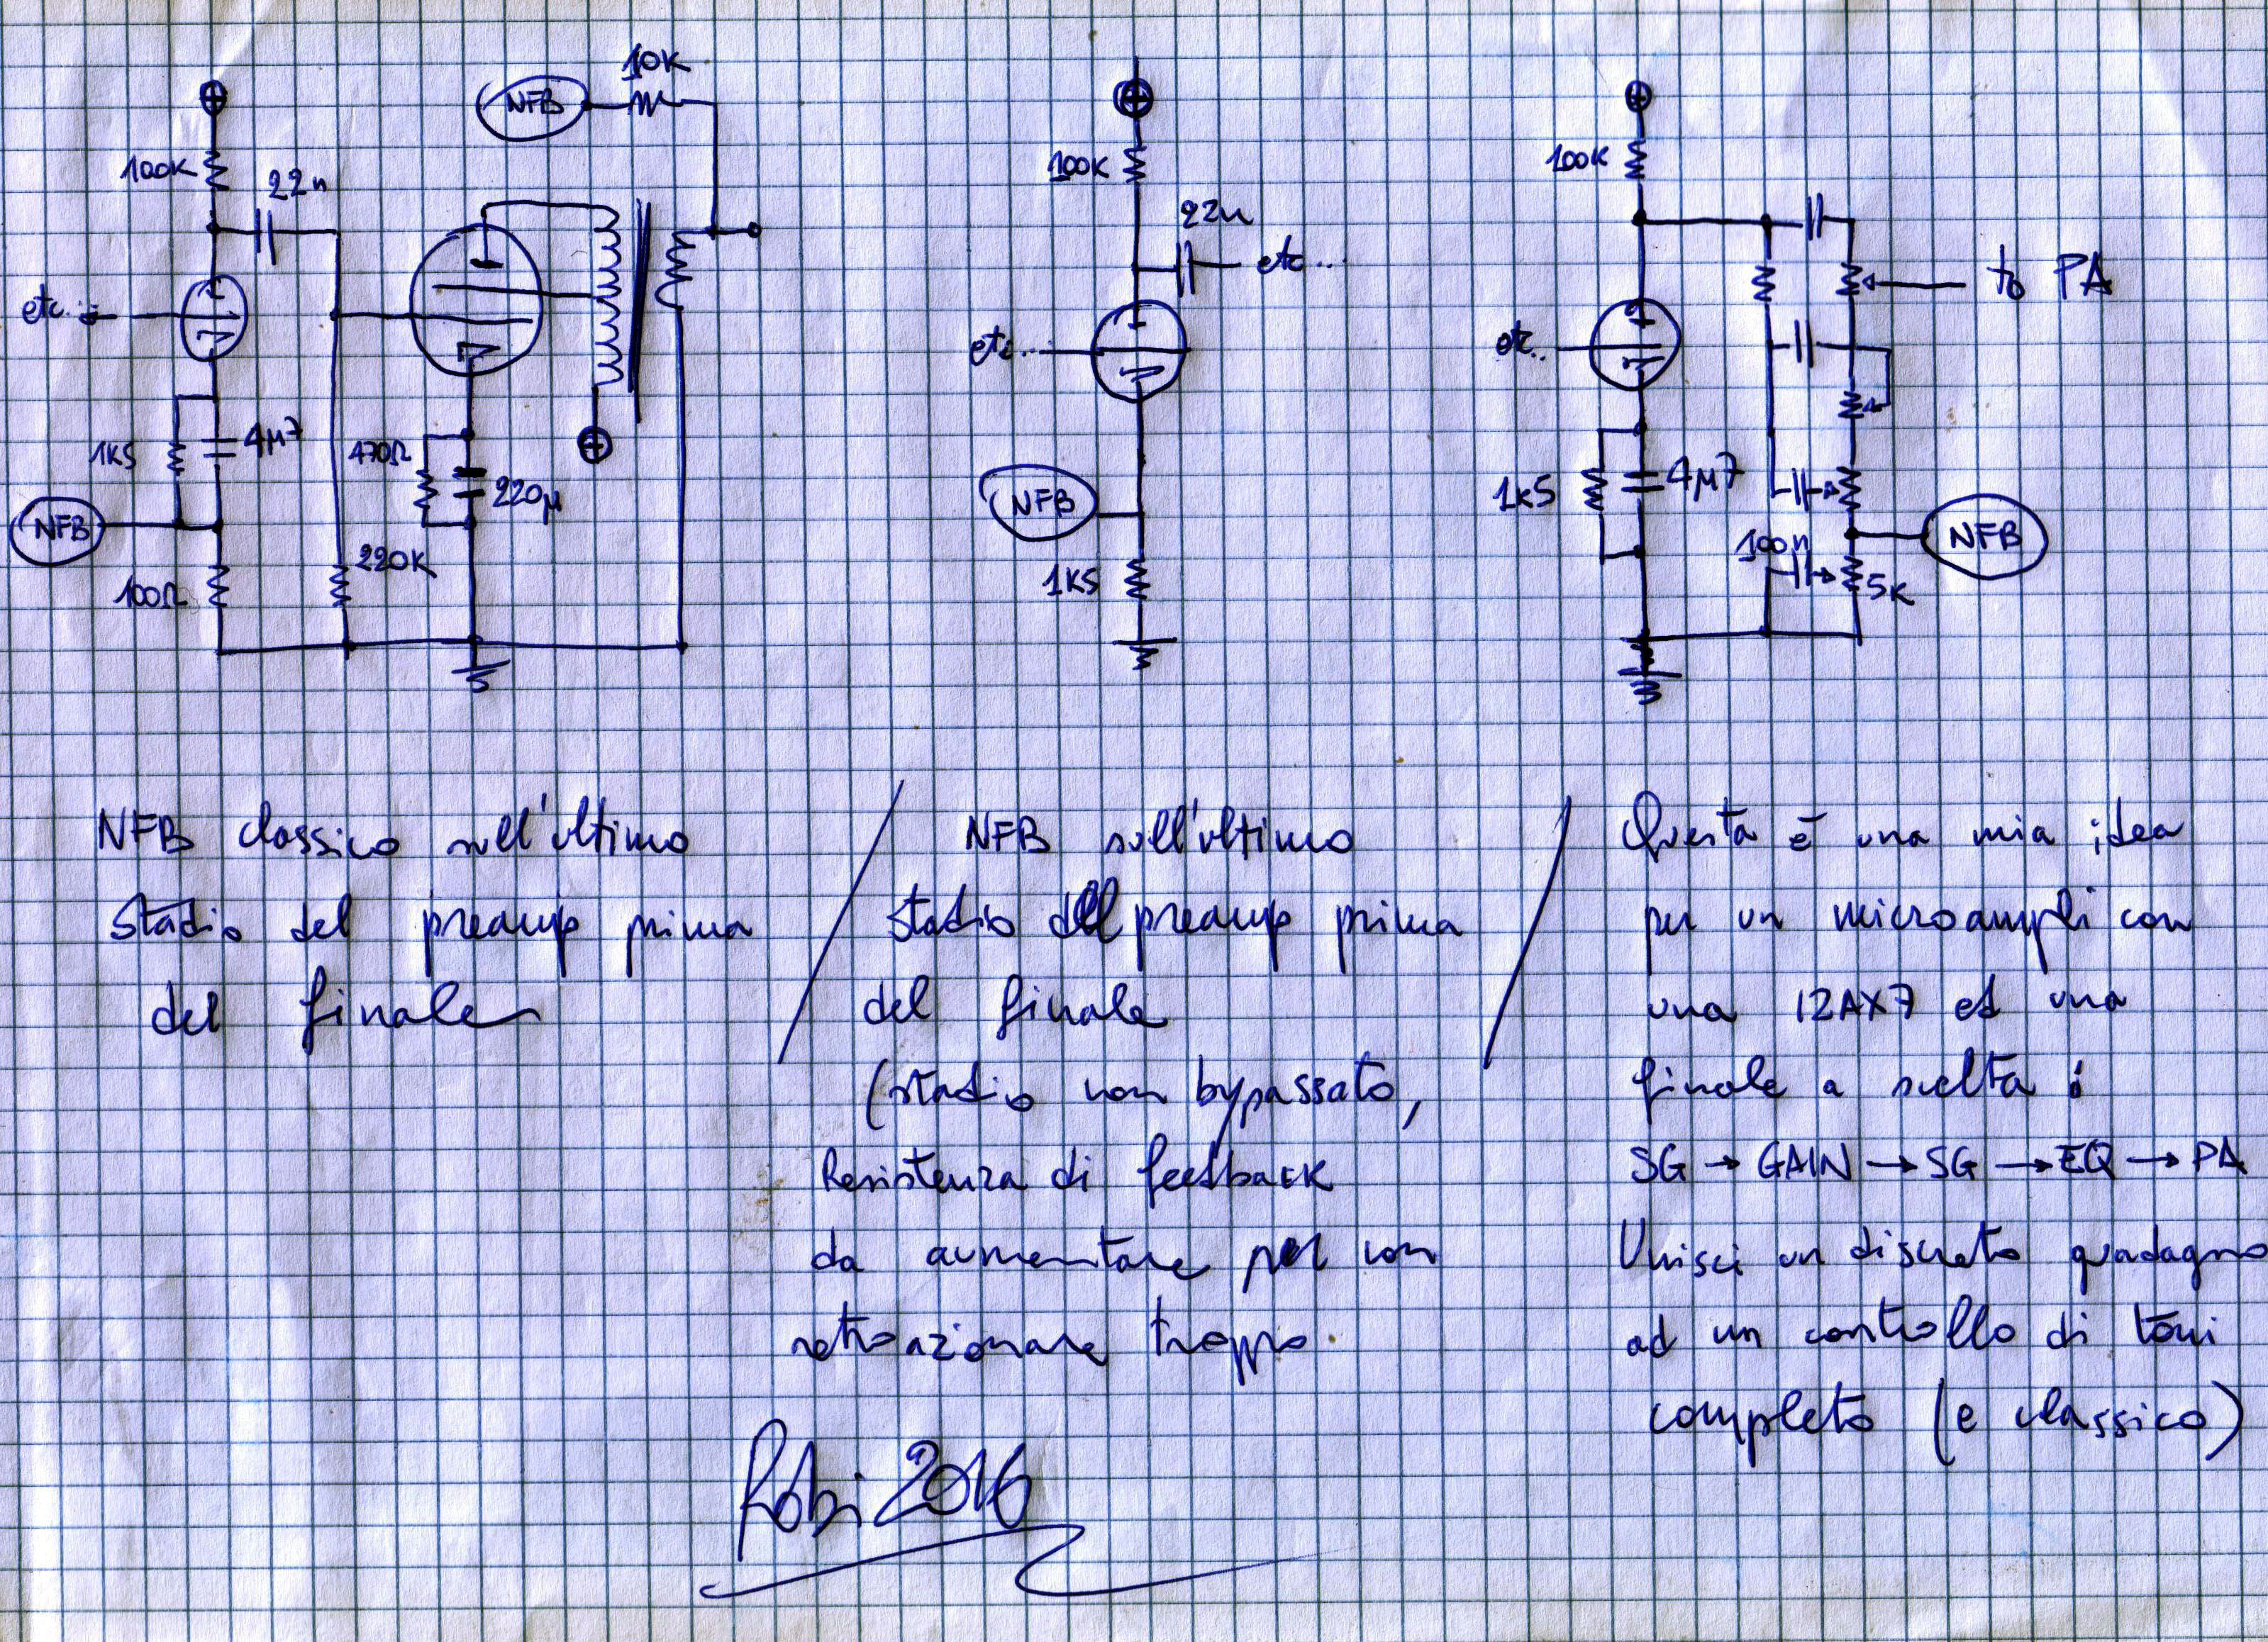 10K
NFB
100K
22n
etc..
1K5
4µ7
NFB
100Ω
470Ω
220µ
220K
100K
22n
etc...
etc...
NFB
1K5
100K
to PA
etc..
1K5
4µ7
NFB
100n
5K
NFB classico sull'ultimo
Stadio del preamp prima
del finale
NFB sull'ultimo
Stadio del preamp prima
del finale
(stadio non bypassato,
Resistenza di feedback
da aumentare per non
retroazionare troppo
Questa è una mia idea
per un microampli con
una 12AX7 ed una
finale a scelta:
SG → GAIN → SG → EQ → PA
Unisci un discreto guadagno
ad un controllo di toni
completo (e classico)
Robi 2016